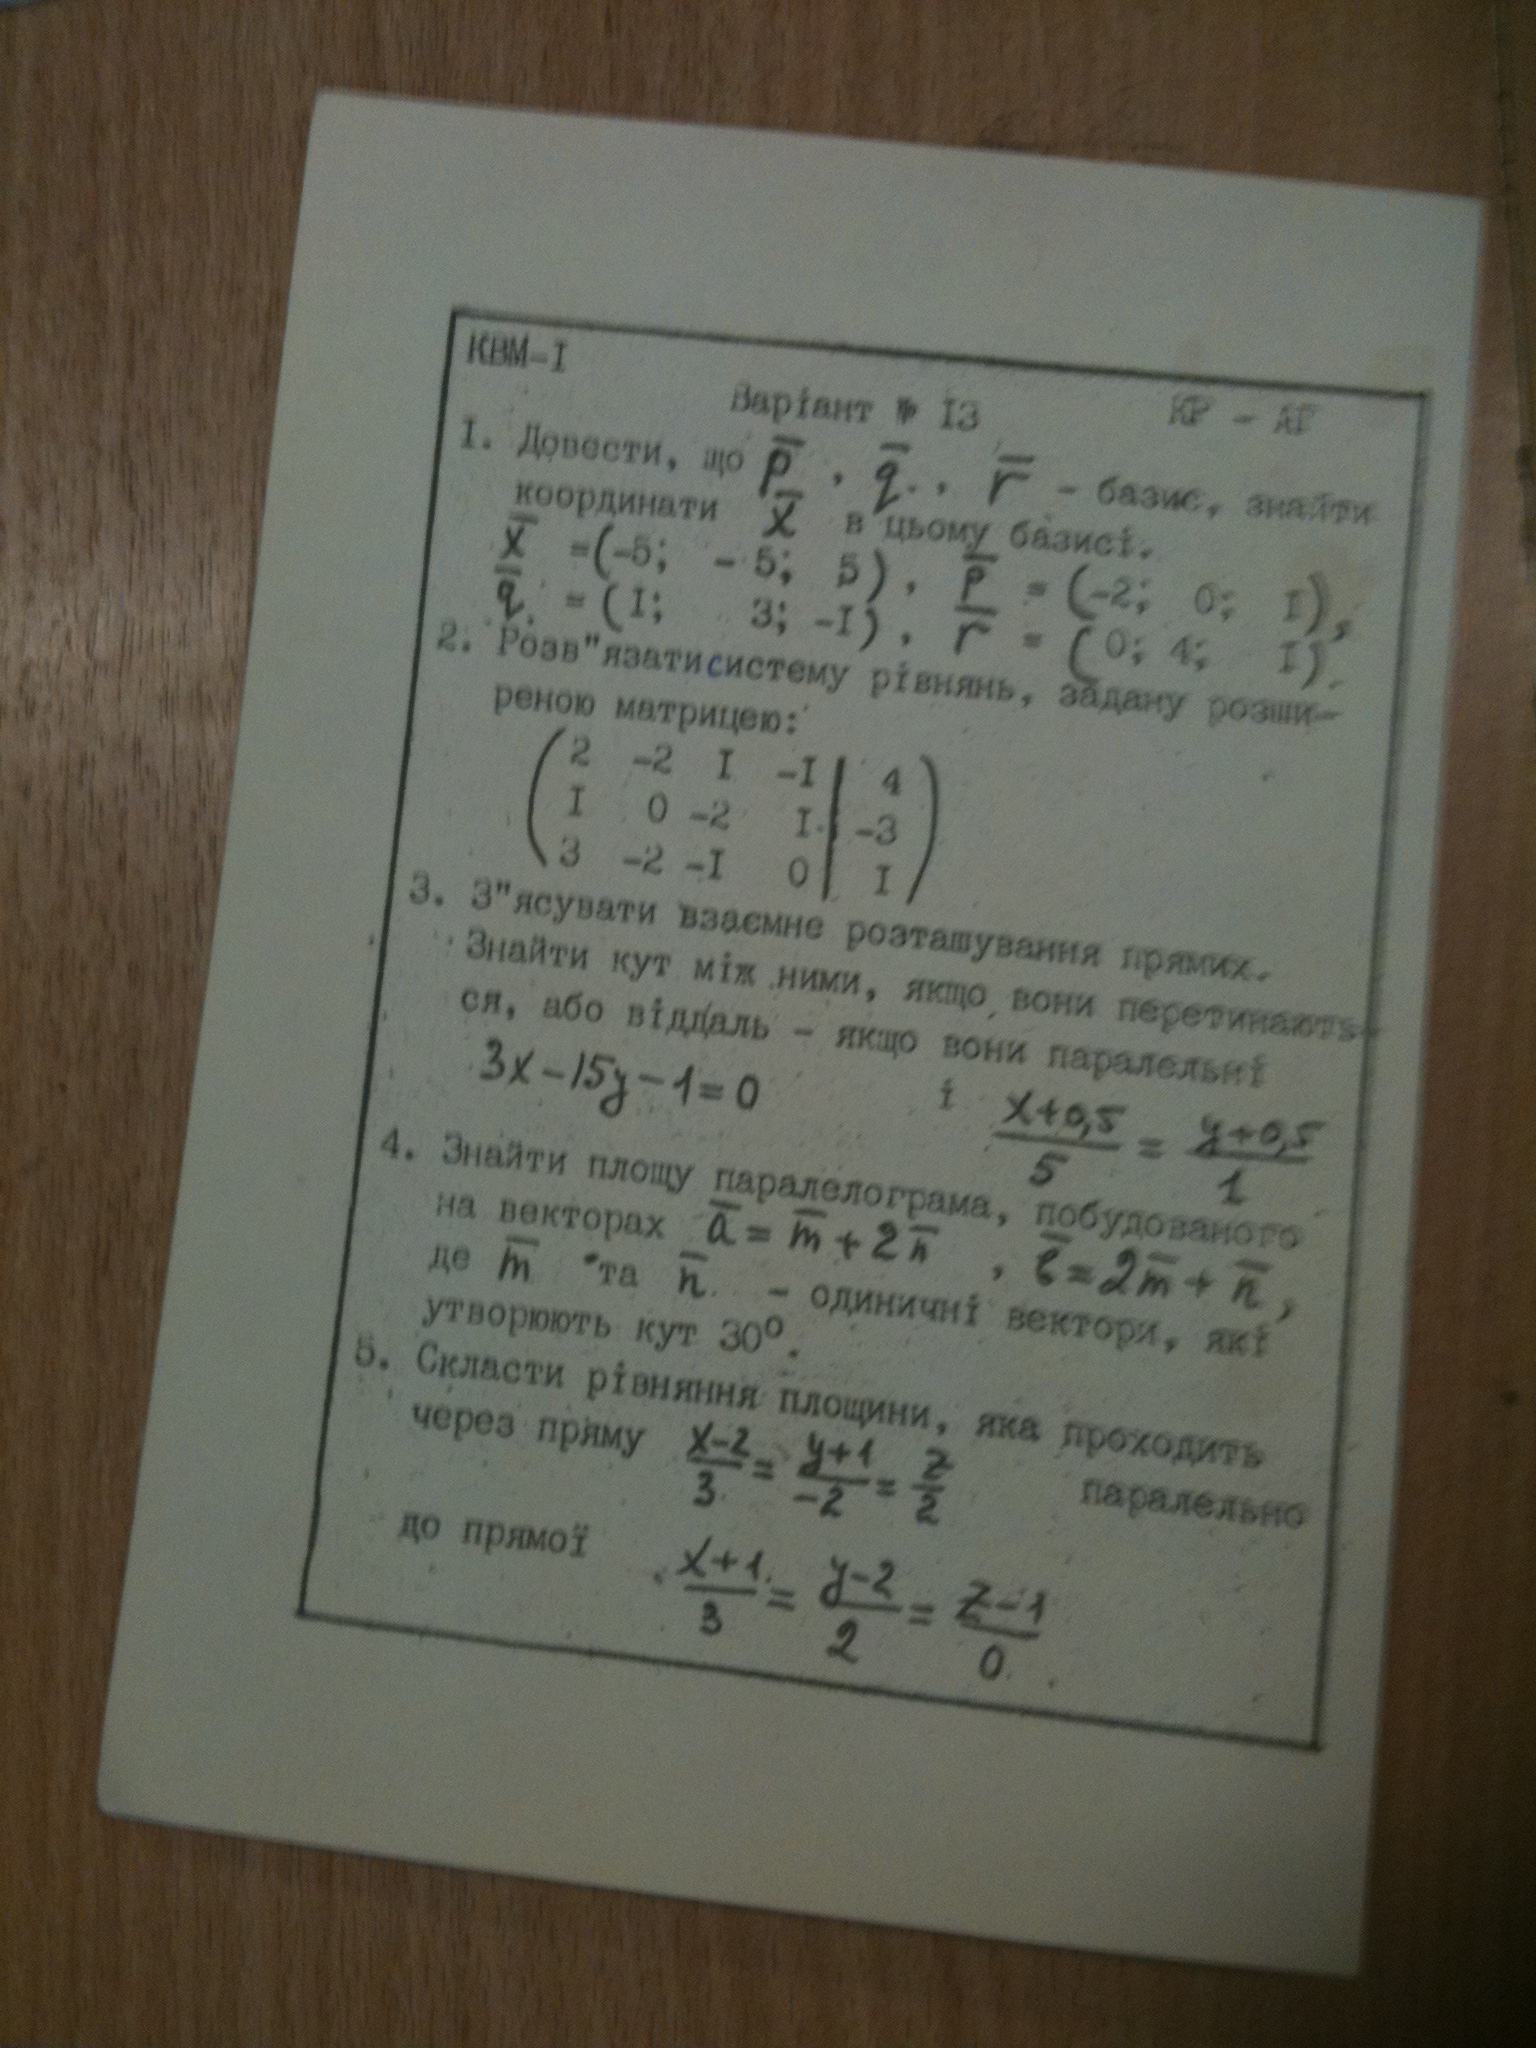 КВМ-I
Варіант № I3 КР - АГ
I. Довести, що p̅ , q̅ , r̅ - базис, знайти
координати x̅ в цьому базисі.
x̅ =(-5; - 5; 5), p̅ = (-2; 0; I),
q̅ = (I; 3; -I), r̅ = (0; 4; I).
2. Розв"язатисистему рівнянь, задану розши-
реною матрицею:
2 -2 I -I | 4
I 0 -2 I | -3
3 -2 -I 0 | I
3. З"ясувати взаємне розташування прямих.
Знайти кут між ними, якщо вони перетинають-
ся, або віддаль - якщо вони паралельні
3x-15y-1=0 і (x+0,5)/5 = (y+0,5)/1
4. Знайти площу паралелограма, побудованого
на векторах a̅ = m̅ + 2n̅ , b̅ = 2m̅ + n̅ ,
де m̅ та n̅ - одиничні вектори, які
утворюють кут 30°.
5. Скласти рівняння площини, яка проходить
через пряму (x-2)/3 = (y+1)/-2 = z/2 паралельно
до прямої (x+1)/3 = (y-2)/2 = (z-1)/0